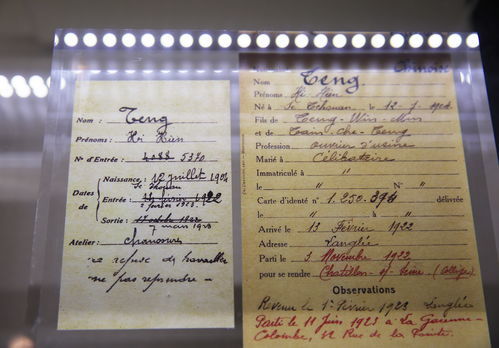 Nom : Teng
Prénoms : Hi Hien
N° d'Entrée : 4088 5370
Dates de
Naissance : 12 juillet 1904
Se Tchouan
Entrée : 14 février 1922
2 février 1923
Sortie : 17 octobre 1922
7 mars 1923
Atelier : chaussures
a refusé de travailler
ne pas reprendre -
Chinoise
Nom Teng
Prénoms Hi Hien
Né à Se Tchouan, le 12-7-1904
Fils de Teng-Wen-Min
et de Tam-Che-Teng
Profession ouvrier d'usine
Marié à Célibataire
Immatriculé à "
le " N° "
Carte d'identité n° 1.250.394 délivrée
le " à "
Arrivé le 13 Février 1922
Adresse Langlée
Parti le 3 Novembre 1922
pour se rendre Chatillon-s/-Seine (Collège)
Observations
Revenu le 1er Février 1923 Langlée
Parti le 11 Juin 1923 à La Garenne-
Colombe, 39 Rue de la Pointe.